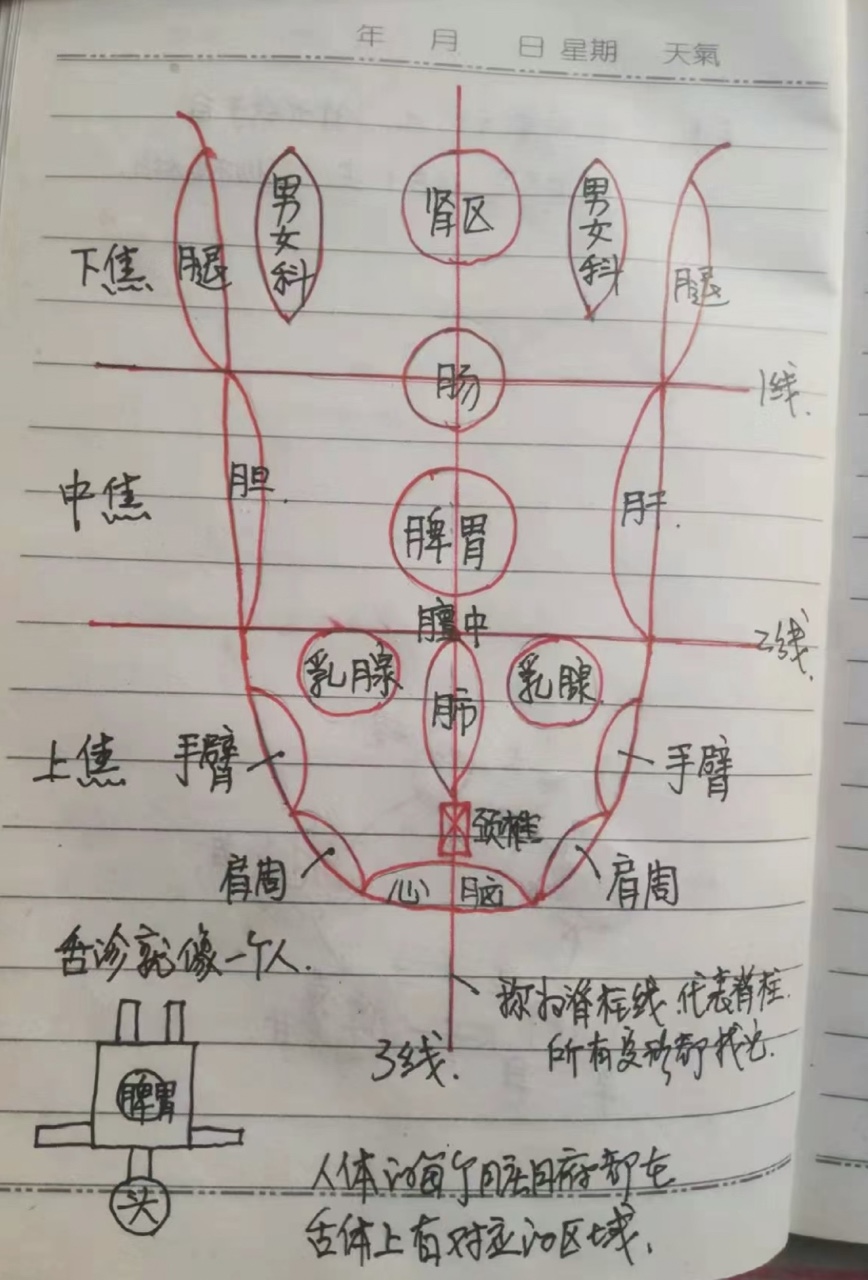 年 月 日 星期 天氣
男女科
肾区
男女科
下焦
腿
腿
肠
1线.
胆.
中焦
肝.
脾胃
膻中
2线.
乳腺
乳腺
肺
上焦
手臂
手臂
颈椎
肩周
心 脑
肩周
舌诊就像一个人.
称为脊柱线 代表脊柱.
所有变形都找它.
3线.
脾胃
头
人体的每个脏腑都在
舌体上有对应的区域.